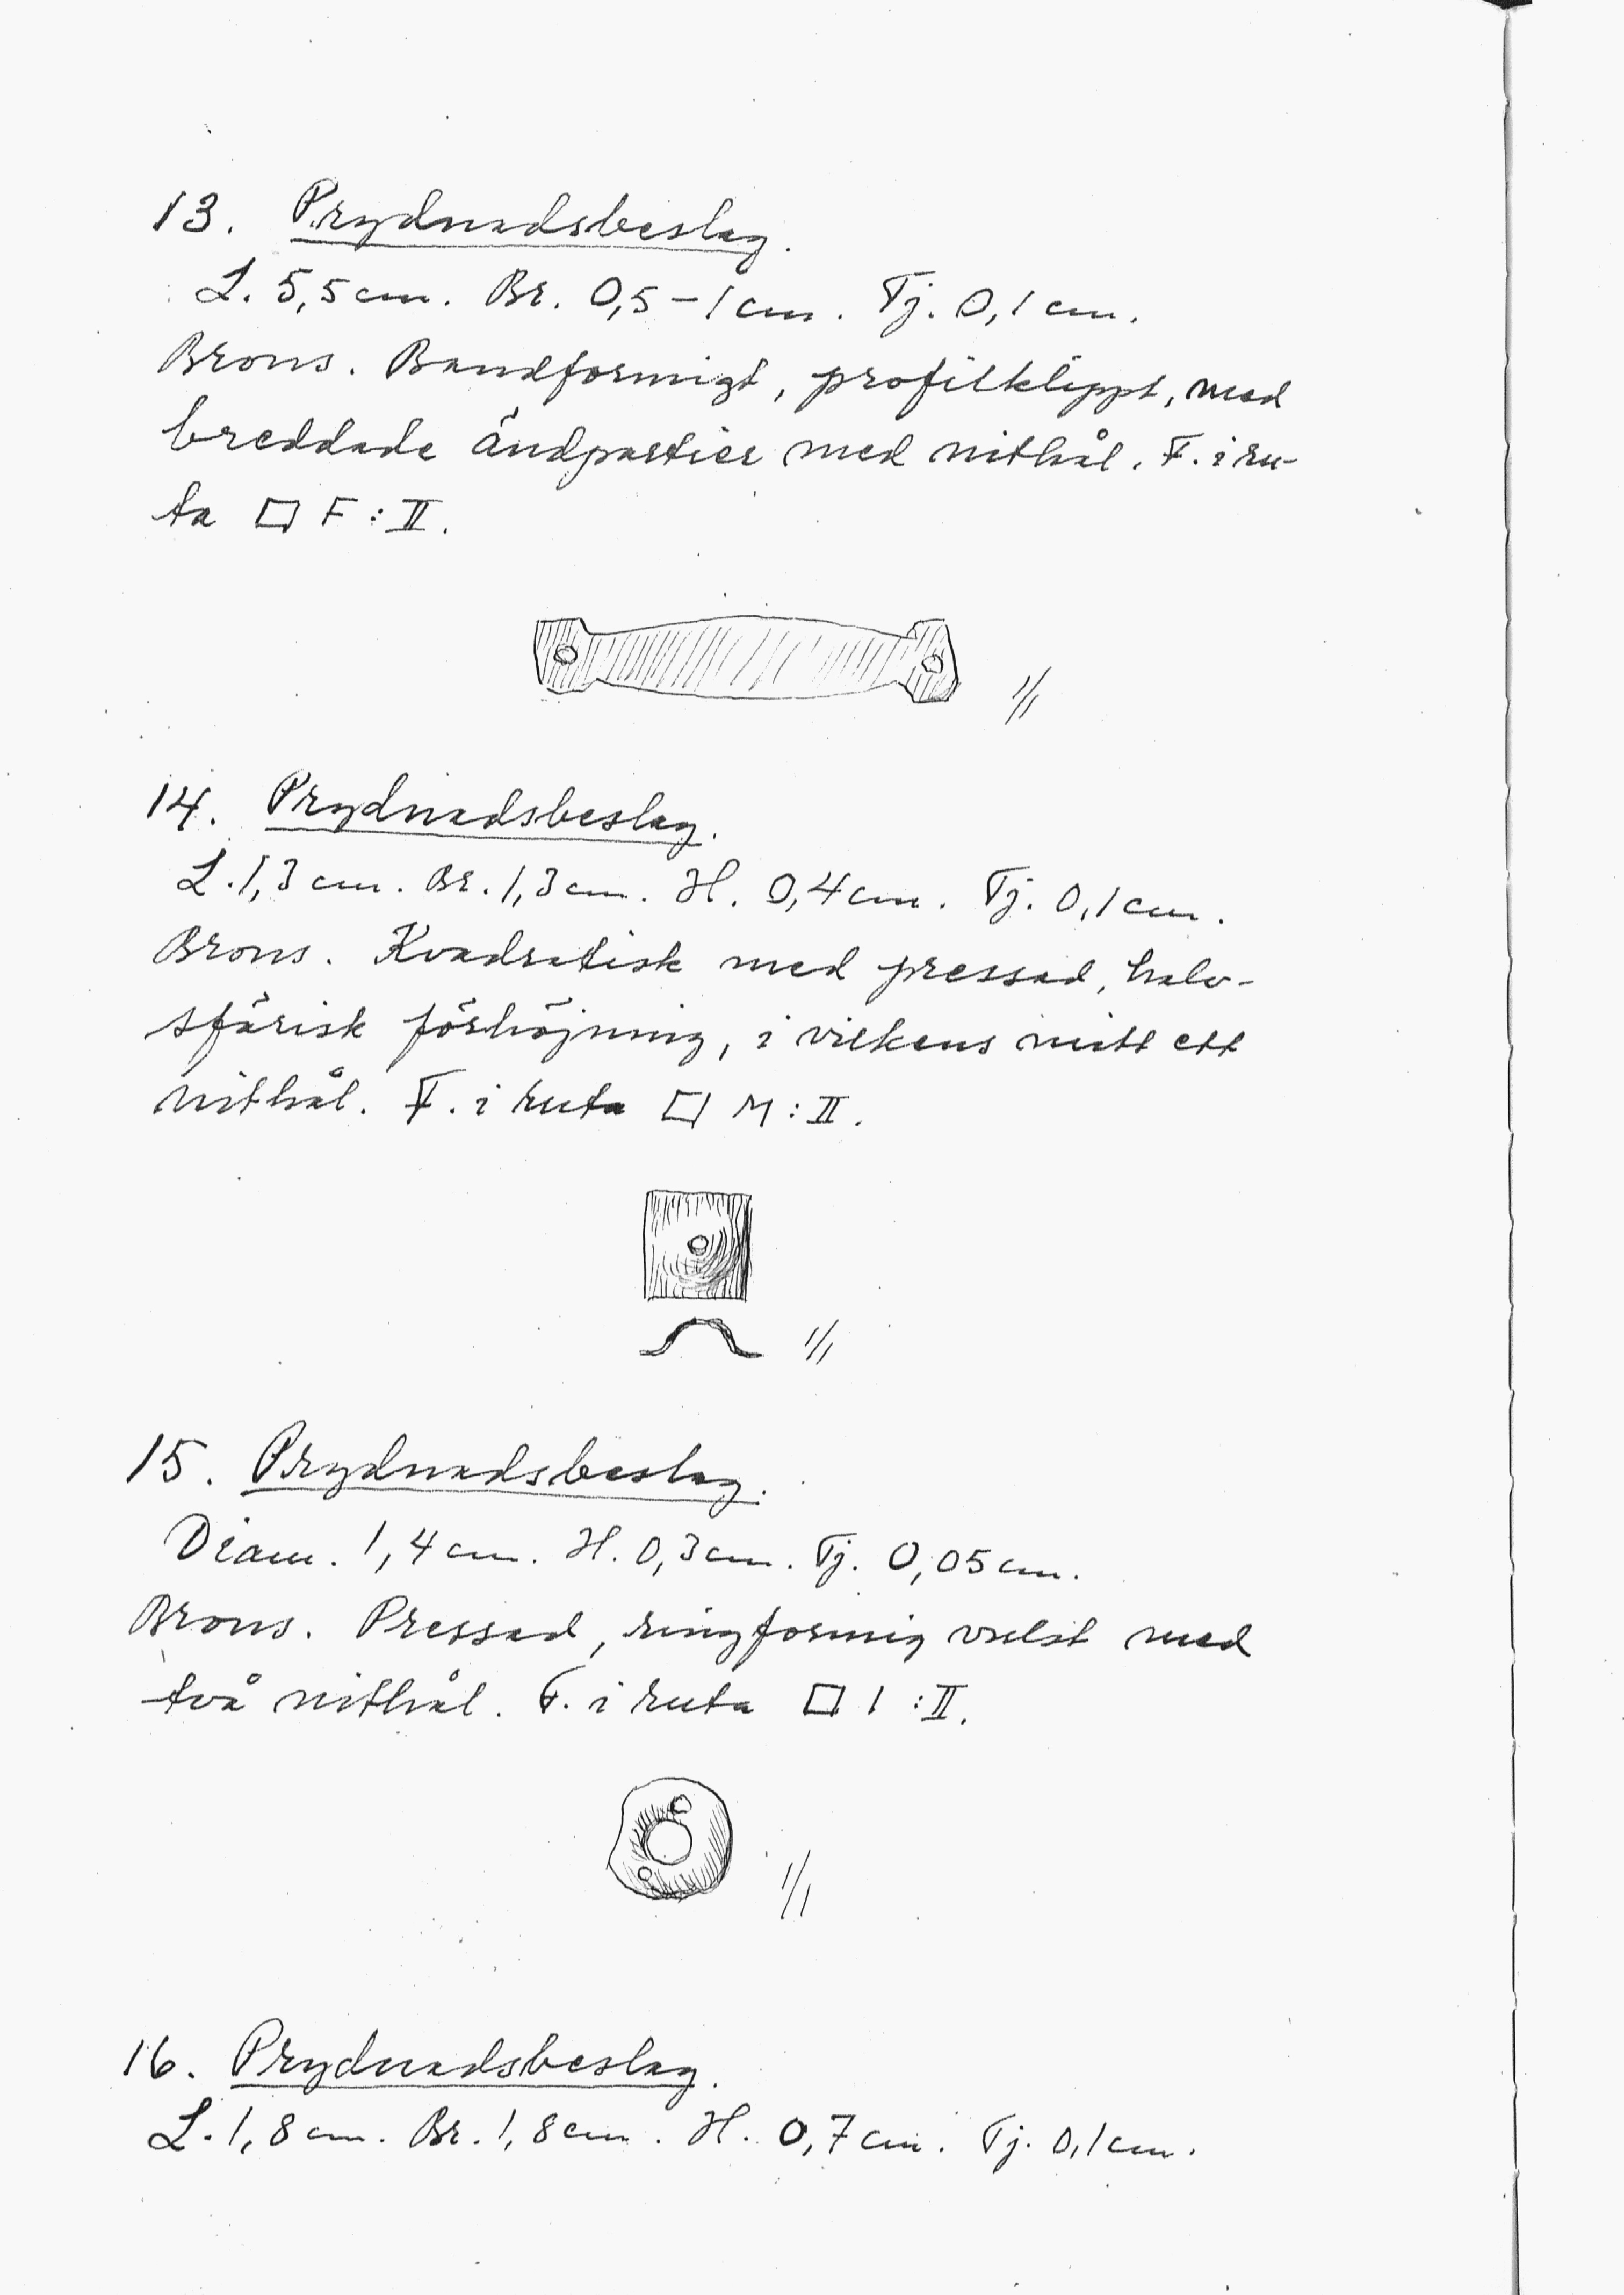 13. Prydnadsbeslag.
L. 5,5 cm. Br. 0,5 – 1 cm. Tj. 0,1 cm.
Brons. Bandformigt, profilklippt, med
breddade ändpartier med nithål. F. i ru-
ta □ F : II.
1/1
14. Prydnadsbeslag.
L. 1,3 cm. Br. 1,3 cm. H. 0,4 cm. Tj. 0,1 cm.
Brons. Kvadratisk med pressad, halv-
sfärisk förhöjning, i vilkens mitt ett
nithål. F. i ruta □ M : II.
1/1
15. Prydnadsbeslag.
Diam. 1,4 cm. H. 0,3 cm. Tj. 0,05 cm.
Brons. Pressad, ringformig vulst med
två nithål. F. i ruta □ I : II.
1/1
16. Prydnadsbeslag.
L. 1,8 cm. Br. 1,8 cm. H. 0,7 cm. Tj. 0,1 cm.